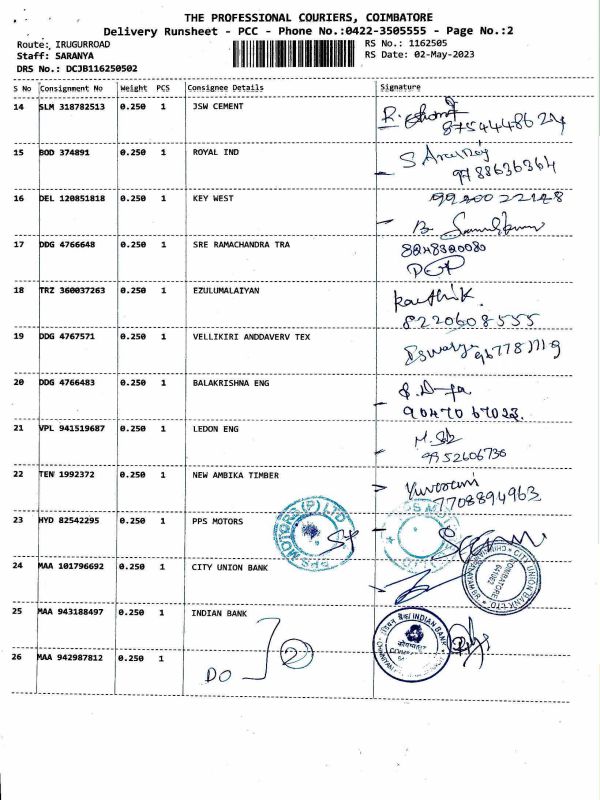 THE PROFESSIONAL COURIERS, COIMBATORE
Delivery Runsheet - PCC - Phone No.:0422-3505555 - Page No.:2
Route: IRUGURROAD RS No.: 1162505
Staff: SARANYA RS Date: 02-May-2023
DRS No.: DCJB116250502
S No Consignment No Weight PCS Consignee Details Signature
14 SLM 318782513 0.250 1 JSW CEMENT
8754448624
15 BOD 374891 0.250 1 ROYAL IND
9788636364
16 DEL 120851818 0.250 1 KEY WEST
17 DDG 4766648 0.250 1 SRE RAMACHANDRA TRA
8248320080
18 TRZ 360037263 0.250 1 EZULUMALAIYAN Karthik.
8220608555
19 DDG 4767571 0.250 1 VELLIKIRI ANDDAVERV TEX
20 DDG 4766483 0.250 1 BALAKRISHNA ENG
9047067023.
21 VPL 941519687 0.250 1 LEDON ENG
9952606736
22 TEN 1992372 0.250 1 NEW AMBIKA TIMBER Yuvarani
7708894963
23 HYD 82542295 0.250 1 PPS MOTORS
PPS MOTORS (P) LTD
24 MAA 101796692 0.250 1 CITY UNION BANK
CITY UNION BANK LTD
COIMBATORE
25 MAA 943188497 0.250 1 INDIAN BANK
INDIAN BANK
26 MAA 942987812 0.250 1
DO 2